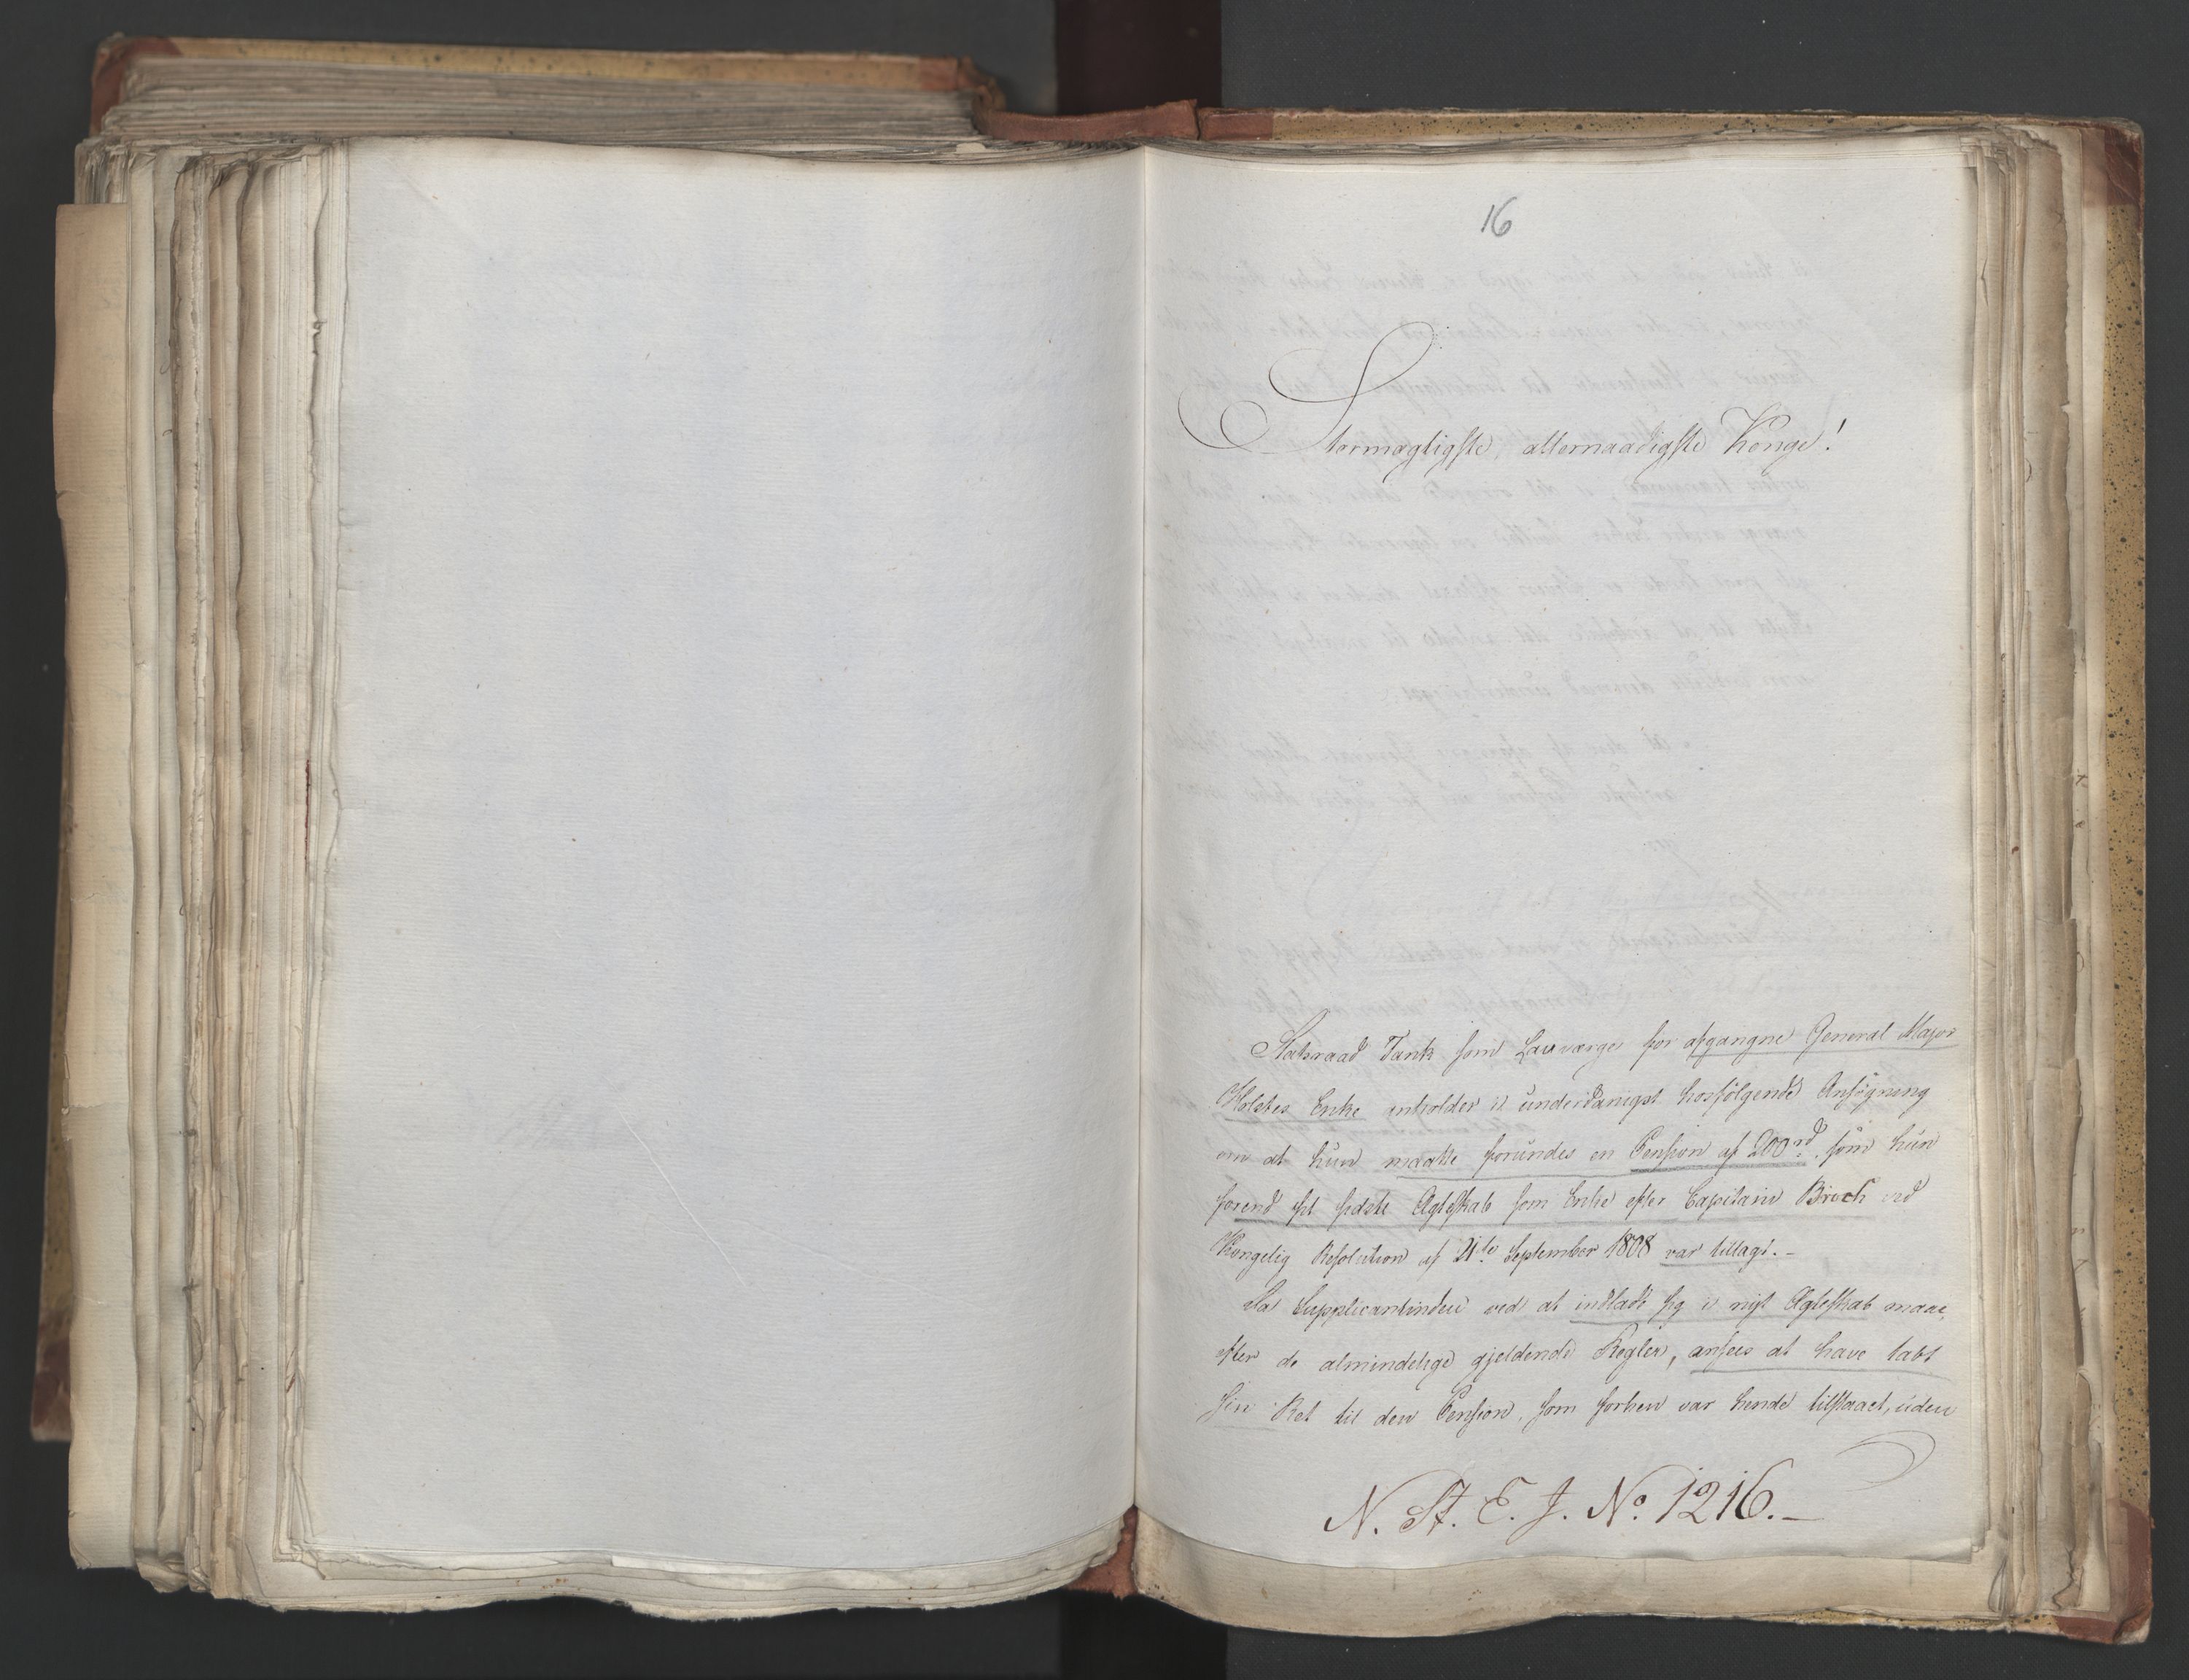 16
Stormægtigste, allernaadigste Konge!
Statsraad Tank som Lauværge for afgangne General Major
Holstes Enke anholder i underdanigst hosfølgende Ansøgning
om at hun maatte forundes en Pension af 200 rd. som hun
forend sit sidste Ægteskab som Enke efter Capitain Broch ved
Kongelig Resolution af 21de September 1808 var tillagt.-
Da Supplicantinden ved at indlade sig i nyt Ægteskab maae,
efter de almindelige gjeldende Regler, ansees at have tabt
sin Ret til den Pension, som forhen var hende tilstaaet, uden
N. St. E. J. No. 1216.-